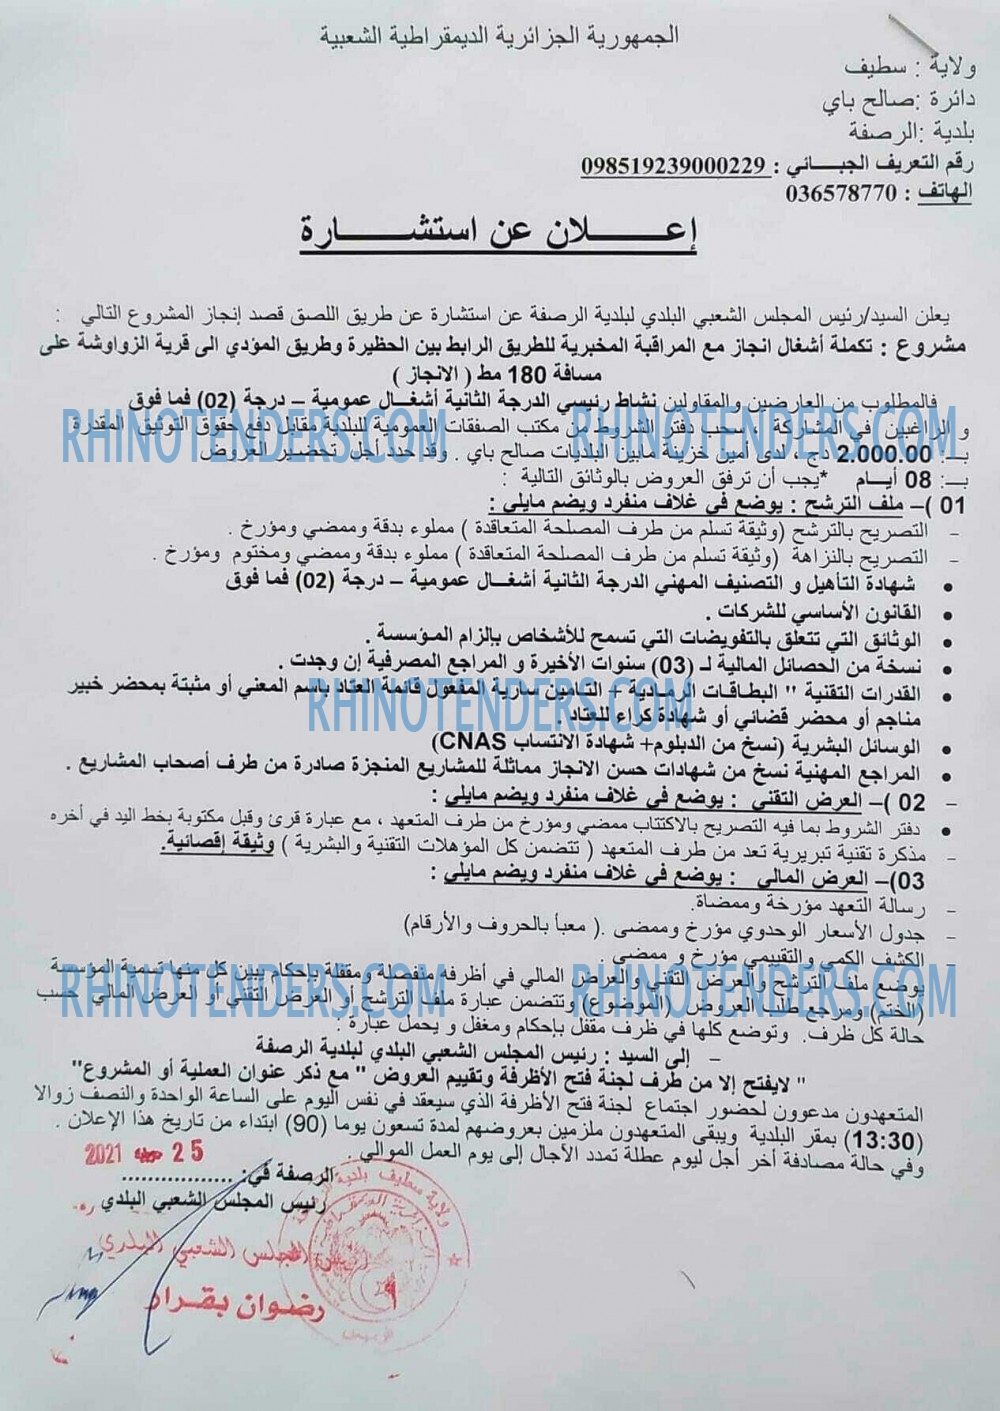 الجمهورية الجزائرية الديمقراطية الشعبية
ولاية : سطيف
دائرة :صالح باي
بلدية :الرصفة
رقم التعريف الجبـــائي : 098519239000229
الهاتف : 036578770
إعـــــلان عن استشـــــارة
يعلن السيد/رئيس المجلس الشعبي البلدي لبلدية الرصفة عن استشارة عن طريق اللصق قصد إنجاز المشروع التالي :
مشروع : تكملة أشغال انجاز مع المراقبة المخبرية للطريق الرابط بين الحظيرة وطريق المؤدي الى قرية الزواوشة على
مسافة 180 مط ( الانجاز )
فالمطلوب من العارضين والمقاولين نشاط رئيسي الدرجة الثانية أشغـال عمومية – درجة (02) فما فوق
RHINOTENDERS.COM RHINOTENDERS.COM
و الراغبين في المشاركة ، سحب دفتر الشروط من مكتب الصفقات العمومية للبلدية مقابل دفع حقوق التوثيق المقدرة
بـــ: 2.000.00 دج ، لدى أمين خزينة مابين البلديات صالح باي . وقد حدد اجل تحضير العروض
بـــ: 08 أيـــام *يجب أن ترفق العروض بالوثائق التالية :
01 )– ملف الترشح : يوضع في غلاف منفرد ويضم مايلي :
- التصريح بالترشح (وثيقة تسلم من طرف المصلحة المتعاقدة ) مملوء بدقة وممضي ومؤرخ .
- التصريح بالنزاهة (وثيقة تسلم من طرف المصلحة المتعاقدة ) مملوء بدقة وممضي ومختوم ومؤرخ .
• شهادة التأهيل و التصنيف المهني الدرجة الثانية أشغـال عمومية – درجة (02) فما فوق
• القانون الأساسي للشركات .
• الوثائق التي تتعلق بالتفويضات التي تسمح للأشخاص بإلزام المـؤسسة .
• نسخة من الحصائل المالية لـ (03) سنوات الأخيرة و المراجع المصرفية إن وجدت .
• القدرات التقنية " البطـاقـات الرمـادية + التامين سارية المفعول قائمة العتاد بإسم المعني أو مثبتة بمحضر خبير
RHINOTENDERS.COM
مناجم أو محضر قضائي أو شهادة كراء للعتاد .
• الوسائل البشرية (نسخ من الدبلوم+ شهادة الانتساب CNAS)
• المراجع المهنية نسخ من شهادات حسن الانجاز مماثلة للمشاريع المنجزة صادرة من طرف أصحاب المشاريع .
- 02 )– العرض التقني : يوضع في غلاف منفرد ويضم مايلي :
• دفتر الشروط بما فيه التصريح بالاكتتاب ممضي ومؤرخ من طرف المتعهد ، مع عبارة قرئ وقبل مكتوبة بخط اليد في أخره
- مذكرة تقنية تبريرية تعد من طرف المتعهد ( تتضمن كل المؤهلات التقنية والبشرية ) وثيقة إقصائية.
03)– العرض المالي : يوضع في غلاف منفرد ويضم مايلي :
- رسالة التعهد مؤرخة وممضاة.
- جدول الأسعار الوحدوي مؤرخ وممضى .( معبأ بالحروف والأرقام)
- الكشف الكمي والتقييمي مؤرخ و ممضي .
يوضع ملف الترشح والعرض التقني والعرض المالي في أظرفه منفصلة ومقفلة بإحكام يبين كل منها تسمية المؤسسة
RHINOTENDERS.COM RHINOTENDERS.COM
(الختم) ومرجع طلب العروض (الموضوع) وتتضمن عبارة ملف الترشح أو العرض التقني أو العرض المالي حسب
حالة كل ظرف. وتوضع كلها في ظرف مقفل بإحكام ومغفل و يحمل عبارة :
– إلى السيد : رئيس المجلس الشعبي البلدي لبلدية الرصفة
" لايفتح إلا من طرف لجنة فتح الأظرفة وتقييم العروض " مع ذكر عنوان العملية أو المشروع"
المتعهدون مدعوون لحضور اجتماع لجنة فتح الأظرفة الذي سيعقد في نفس اليوم على الساعة الواحدة والنصف زوالا
(13:30) بمقر البلدية ويبقى المتعهدون ملزمين بعروضهم لمدة تسعون يوما (90) ابتداء من تاريخ هذا الإعلان .
وفي حالة مصادفة أخر أجل ليوم عطلة تمدد الآجال إلى يوم العمل الموالي .
الرصفة في: .................
25 2021
رئيس المجلس الشعبي البلدي
رئيس المجلس الشعبي البلدي
رضوان بقرار
ولاية سطيف بلدية الرصفة